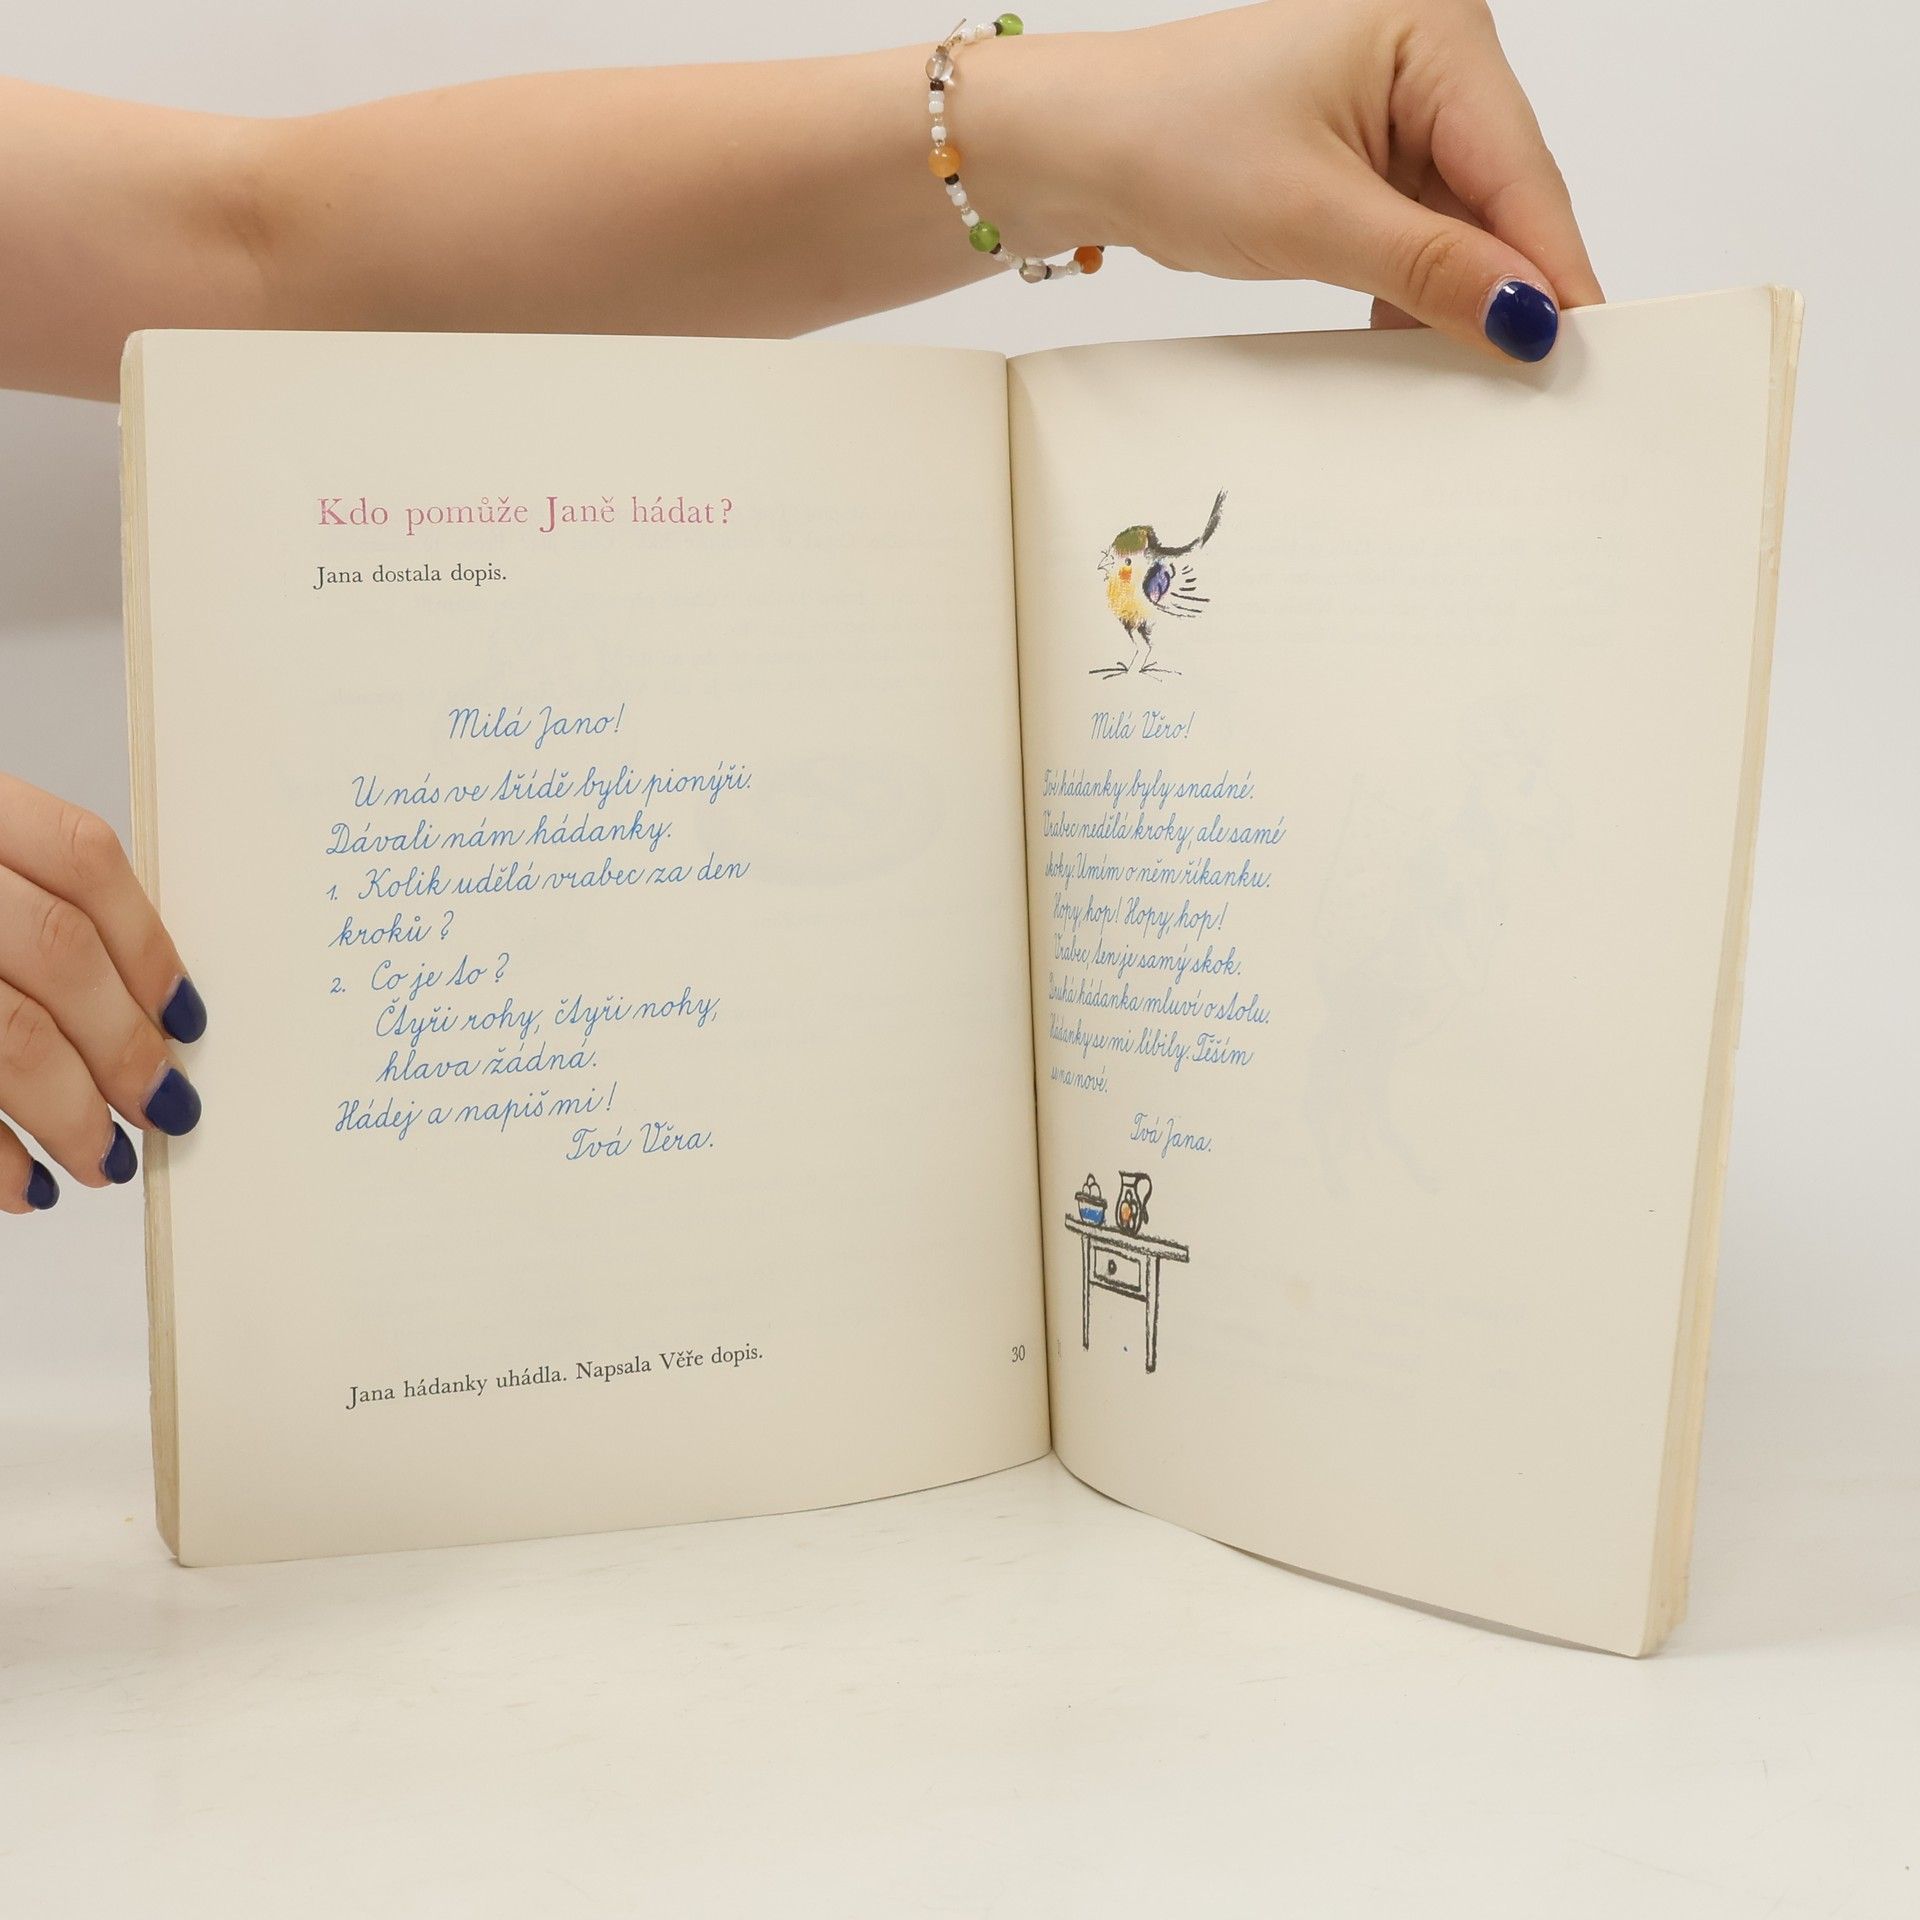 Kdo pomůže Janě hádat?
Jana dostala dopis.
Milá Jano!
U nás ve třídě byli pionýři.
Dávali nám hádanky.
1. Kolik udělá vrabec za den
kroků?
2. Co je to?
Čtyři rohy, čtyři nohy,
hlava žádná.
Hádej a napiš mi!
Tvá Věra.
Jana hádanky uhádla. Napsala Věře dopis.
30
Milá Věro!
Tvé hádanky byly snadné.
Vrabec nedělá kroky, ale samé
skoky. Umím o něm říkanku.
Hopy, hop! Hopy, hop!
Vrabec, ten je samý skok.
Druhá hádanka mluví o stolu.
Hádanky se mi líbily. Těším
se na nové.
Tvá Jana.